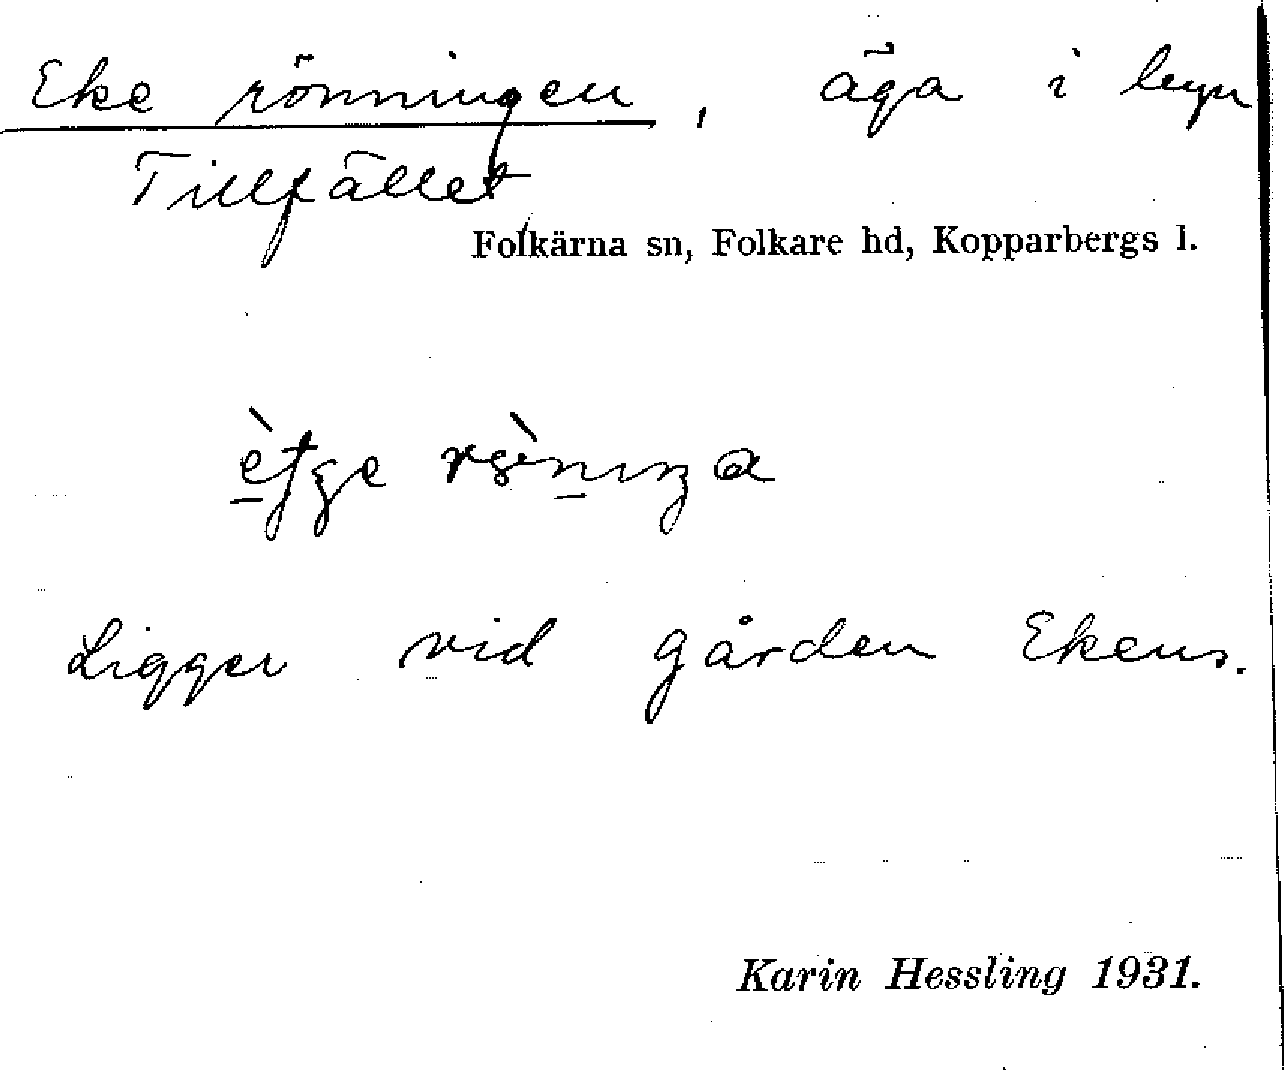 Eke rönningen, äga i byn
Tillfället
Folkärna sn, Folkare hd, Kopparbergs l.
Ligger vid gården Ekens.
Karin Hessling 1931.